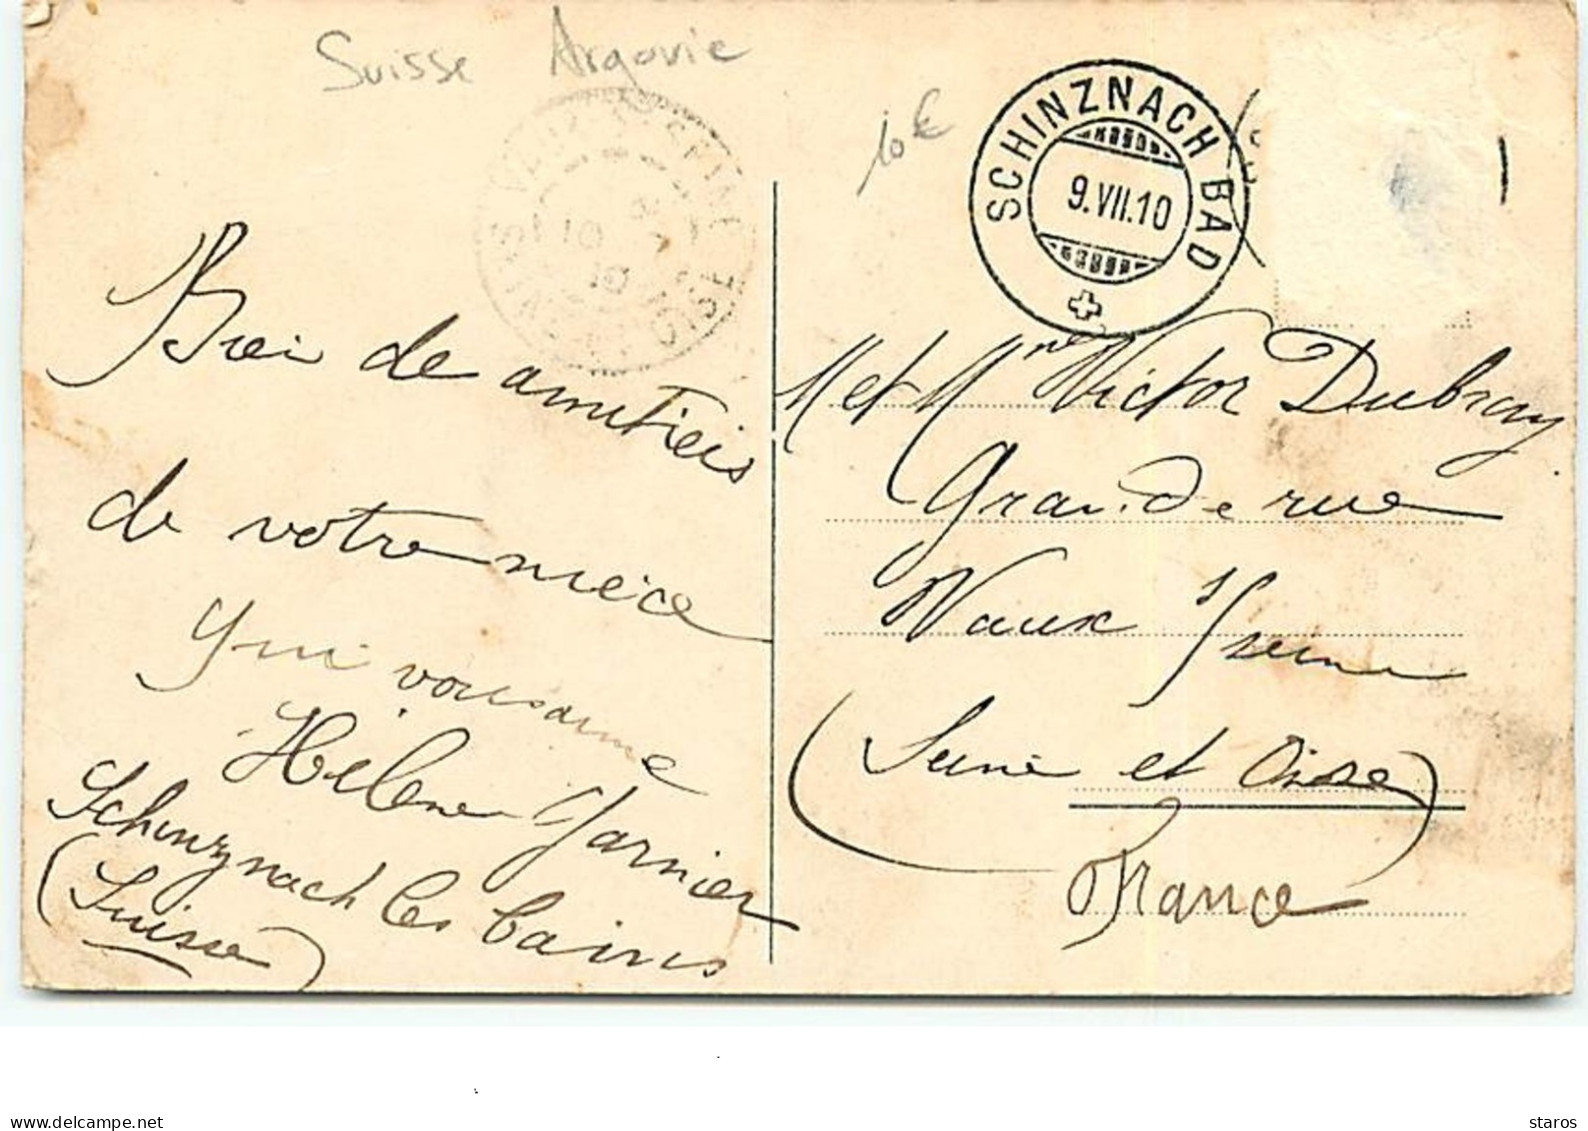 Suisse Argovie
10 €
SCHINZNACH BAD
9.VII.10
VAUX SEINE
OISE
10
10
Bien de amitiéis
de votre niéce
qui vous aime
Hélène Garnier
Schinznach les bains
(Suisse)
M et Mme Victor Dubray
Grande rue
Vaux s/seine
(Seine et Oise)
France
www.delcampe.net
staros